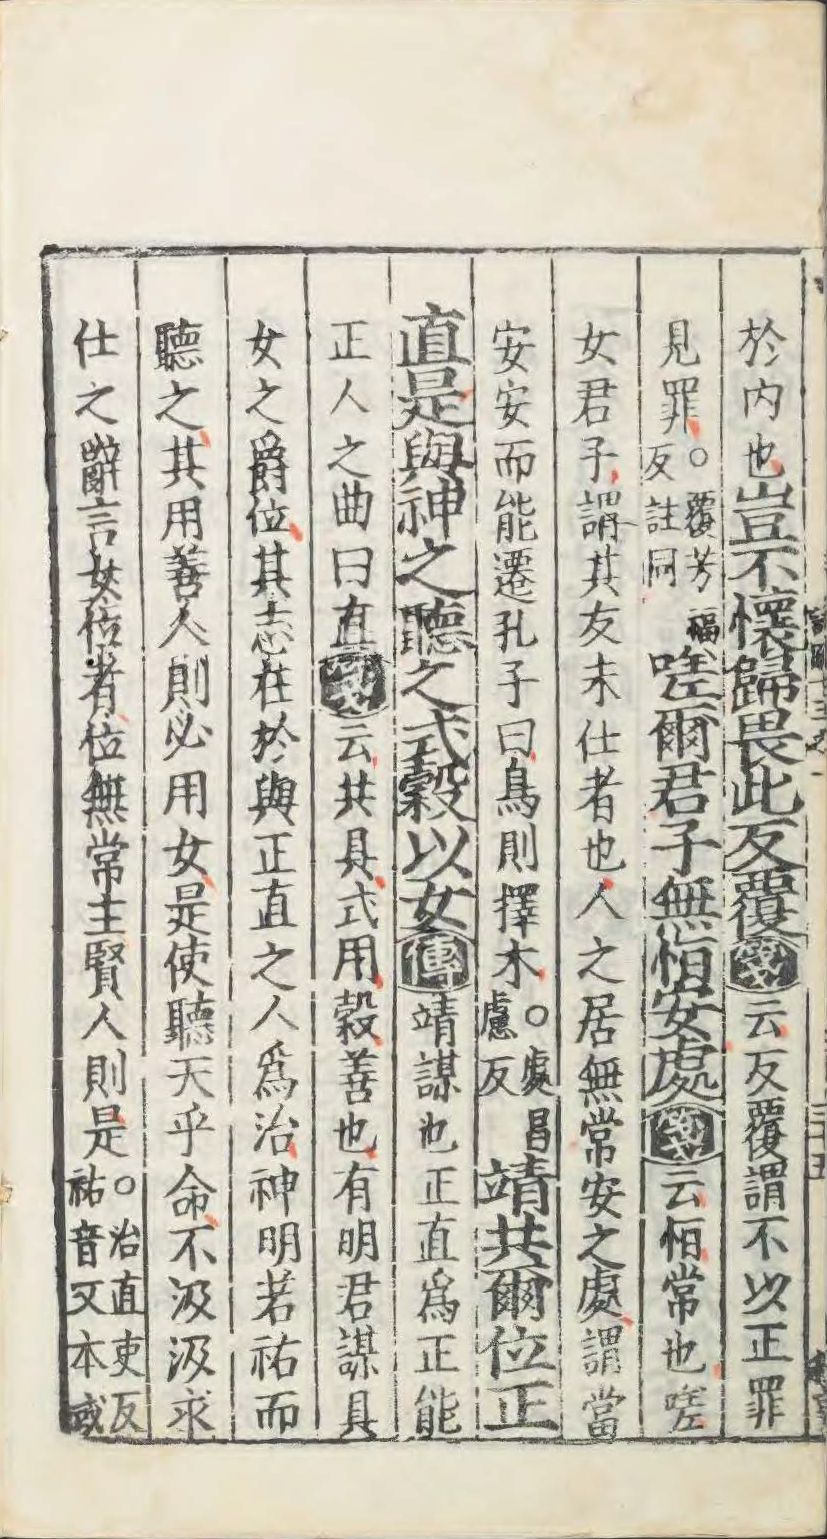 於内也豈不懷歸畏此反覆箋云反覆謂不以正罪
見罪○覆芳福反註同嗟爾君子無恒安處箋云恒常也嗟
女君子謂其友未仕者也人之居無常安之處謂當
安安而能遷孔子曰鳥則擇木○處昌慮反靖共爾位正
直是與神之聽之式穀以女傳靖謀也正直爲正能
正人之曲曰直箋云共具式用穀善也有明君謀具
女之爵位其志在於與正直之人爲治神明若祐而
聽之其用善人則必用女是使聽天乎命不汲汲求
仕之辭言女位者位無常主賢人則是○治直吏反祐音又本或